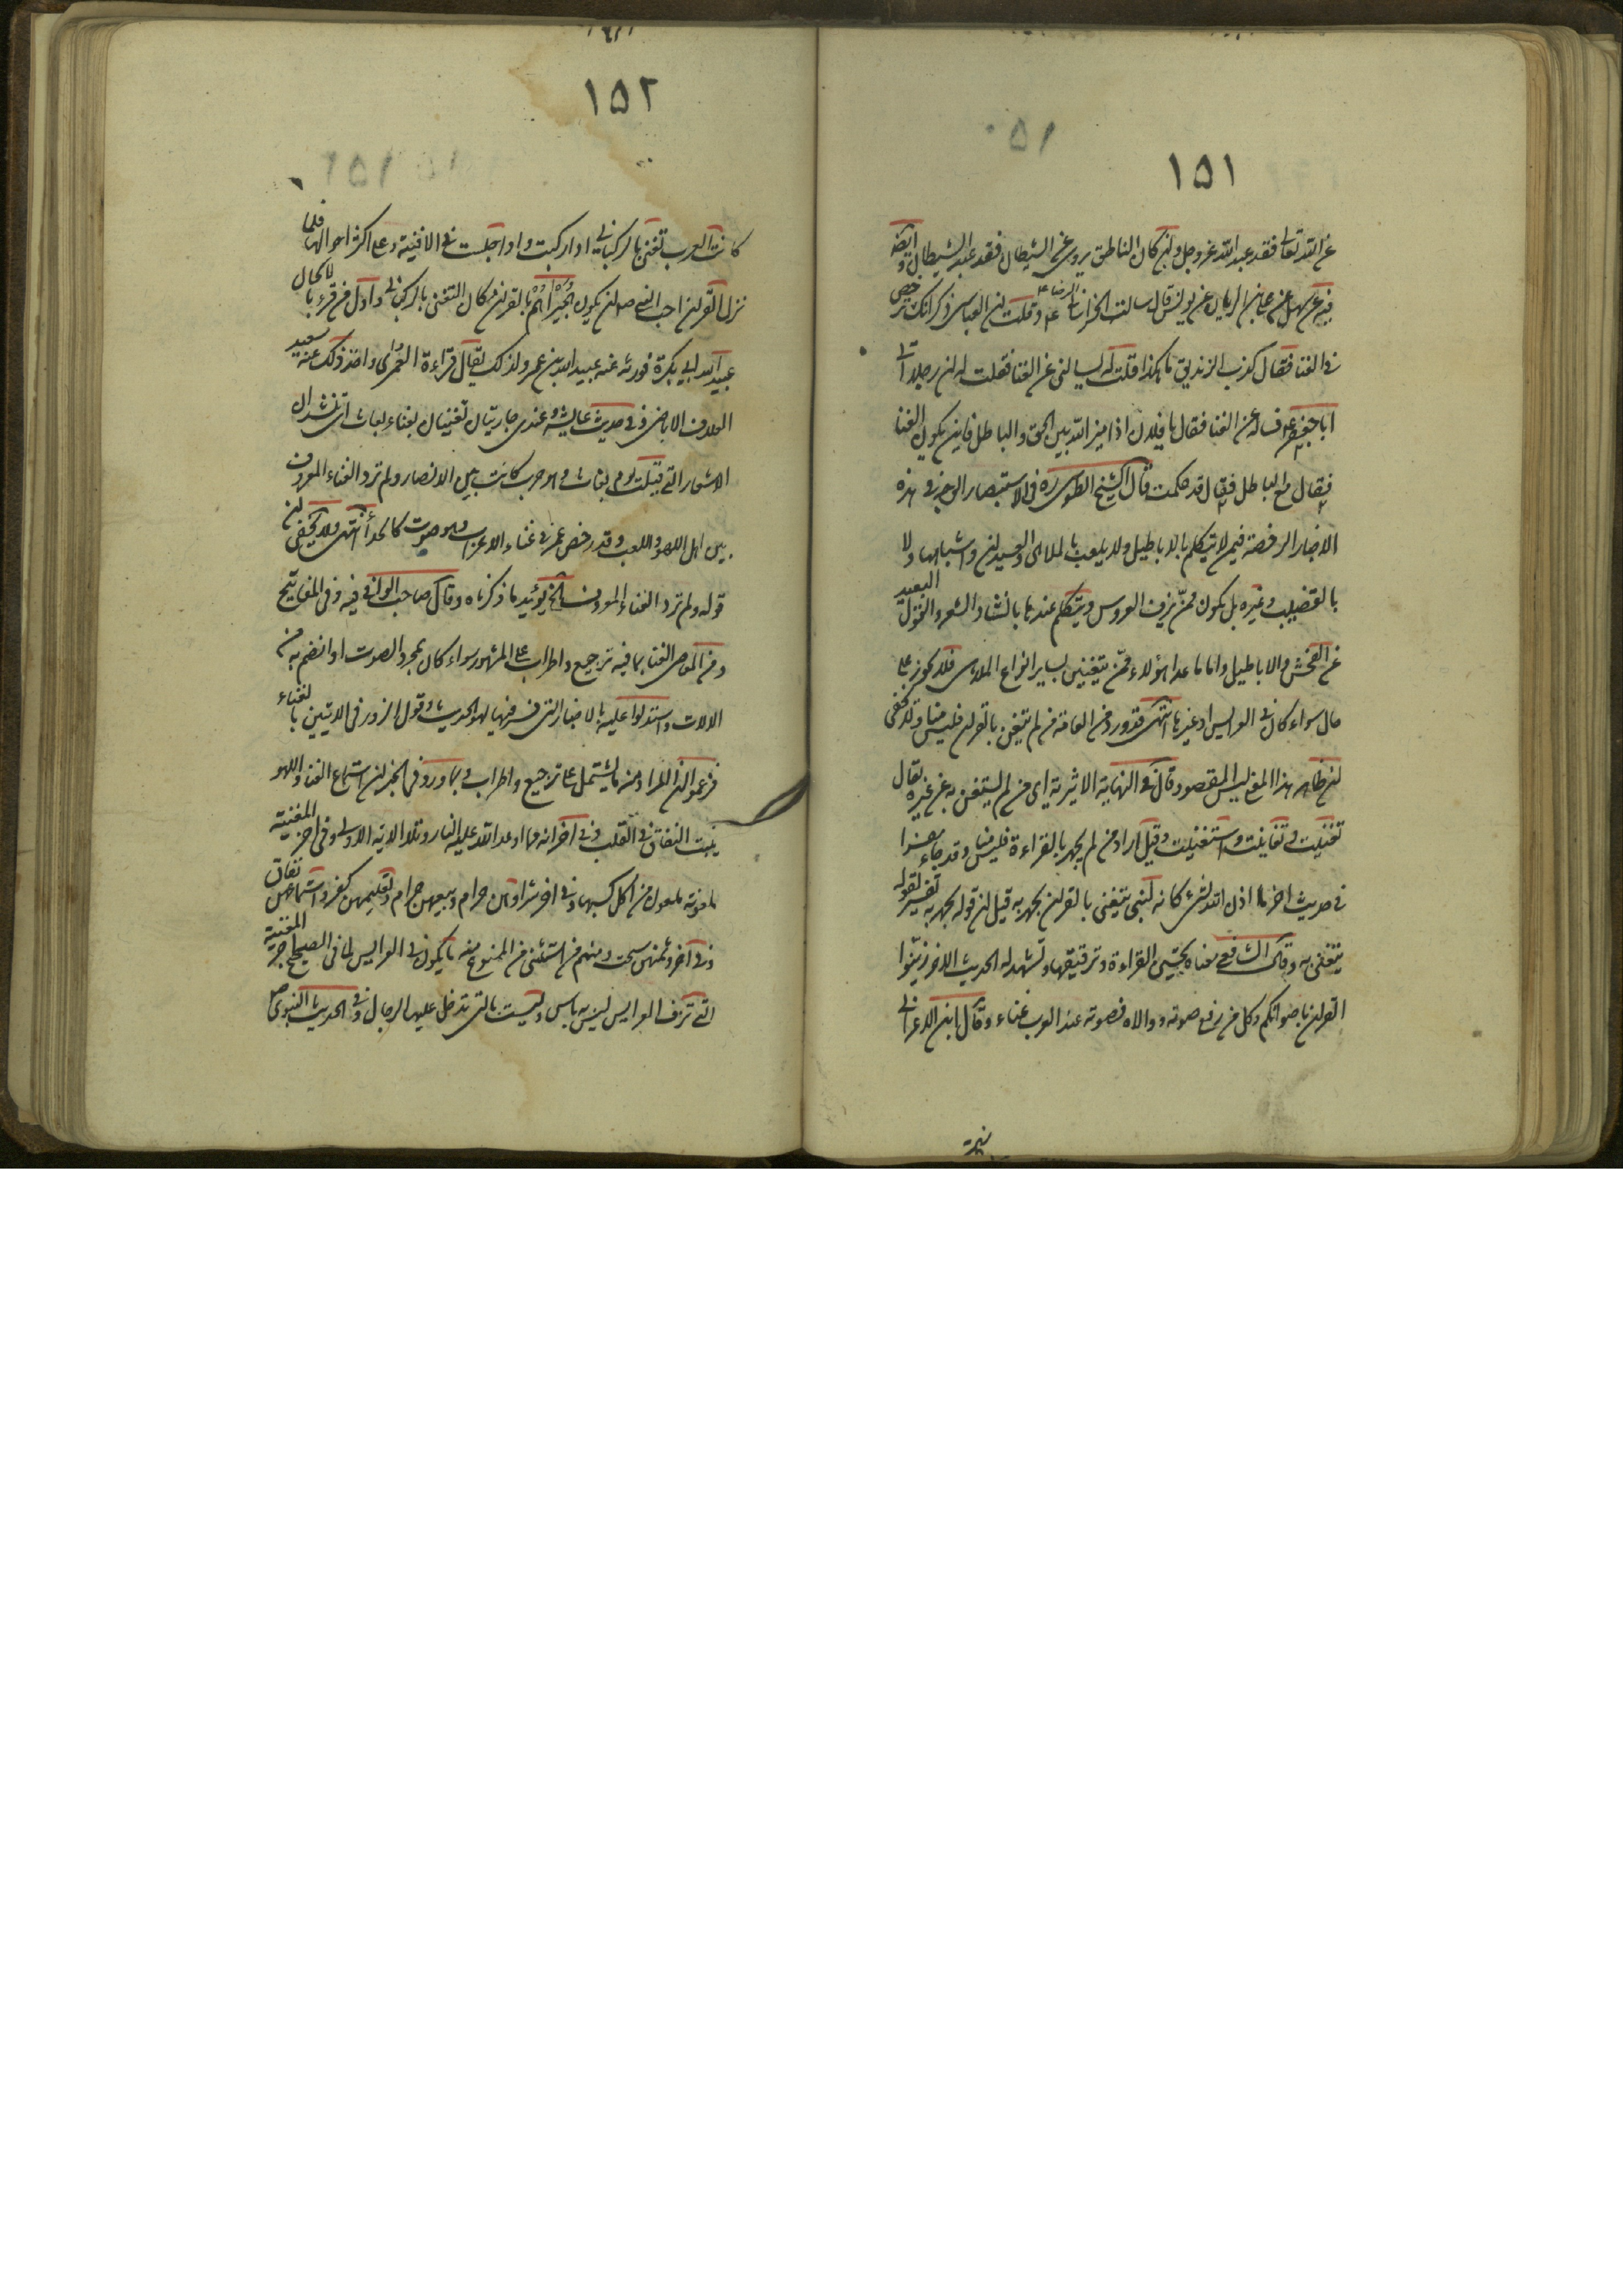 ١٥١
عن الله تعالى فقد عبد الله عز وجل وان كان الناطق يروى عن الشيطان فقد عبد الشيطان وايضا
فيه عن سهل عن على بن الريان عن يونس قال سالت الخراسانى الرضا ع وقلت ان العباسى ذكر انك ترخص
فى الغنا فقال كذب الزنديق ما هكذا قلت له سالنى عن الغنا فقلت له ان رجلا اتى
ابا جعفر ع فساله عن الغنا فقال يا فلان اذا ميز الله بين الحق والباطل فاين يكون الغنا
فقال مع الباطل فقال قد حكمت قال الشيخ الطوسى ره فى الاستبصار الوجه فى هذه
الاخبار الرخصة فيمن لا يتكلم بالاباطيل ولا يلعب بالملاهى والعيدان واشباهها ولا
بالقضيب وغيره بل يكون ممن يزف العروس ويتكلم عندها بانشاد الشعر والقول البعيد
عن الفحش والاباطيل واما ما عدا هؤلاء ممن يتغنين بساير انواع الملاهى فلا يجوز على
حال سواء كان فى العرايس او غيرها انتهى فقد ورد من العامة من لم يتغن بالقران فليس منا ولا يخفى
ان ظاهر هذا المعنى ليس المقصود قال فى النهاية الاثيرية اى من لم يستغن به عن غيره يقال
تغنيت وتغانيت واستغنيت وقيل اراد من لم يجهر بالقراءة فليس منا وقد جاء مفسرا
فى حديث اخر ما اذن الله لشئ كاذنه لنبى يتغنى بالقران يجهر به قيل ان قوله يجهر به تفسير لقوله
يتغنى به وقال الشافعى معناه تحسين القراءة وترقيقها ويشهد له الحديث الاخر زينوا
القران باصواتكم وكل من رفع صوته ووالاه فصوته عند العرب غناء وقال ابن الاعرابى
١٥٢
كانت العرب تتغنى بالركبانى اذا ركبت واذا جلست فى الافنية وعلى اكثر احوالها فلما
نزل القران احب النبى ص ان يكون هجيراهم بالقران مكان التغنى بالركبانى واول من قرء بالالحان
عبيد الله بن ابى بكرة فورثه عنه عبيد الله بن عمر ولذلك يقال قراءة العمرى واخذ ذلك عنه سعيد
العلاف الاباضى وفى حديث عايشه وعندى جاريتان تغنيان بغناء بعاث اى تنشدان
الاشعار التى قيلت يوم بعاث وهو حرب كانت بين الانصار ولم ترد الغناء المعروف
بين اهل اللهو واللعب وقد رخص عمر فى غناء الاعراب وهو صوت كالحداء انتهى ولا يخفى ان
قوله ولم ترد الغناء المعروف الخ يؤيد ما ذكرناه وقال صاحب الوافى فيه وفى المفاتيح
ومن المعاصى الغنا بما فيه ترجيع واطراب على المشهور سواء كان بمجرد الصوت او انضم به من
الالات واستدلوا عليه بالاخبار التى فسر فيها لهو الحديث وقول الزور فى الايتين بالغناء
فزعموا ان المراد منه ما يشتمل على ترجيع واطراب وبما ورد فى الخبر ان استماع الغناء واللهو
ينبت النفاق فى القلب وفى اخر انه مما اوعد الله عليه النار وتلا الاية الاولى وفى اخر المغنية
ملعونة ملعون من اكل كسبها وفى اخر شراؤهن حرام وبيعهن حرام وتعليمهن كفر واستماعهن نفاق
وفى اخر وثمنهن سحت ومنهم من استثنى من الممنوع منه ما يكون فى العرايس لما فى الصحيح اجر المغنية
التى تزف العرايس ليس به باس وليست بالتى تدخل عليها الرجال وفى الحديث النبوى ص